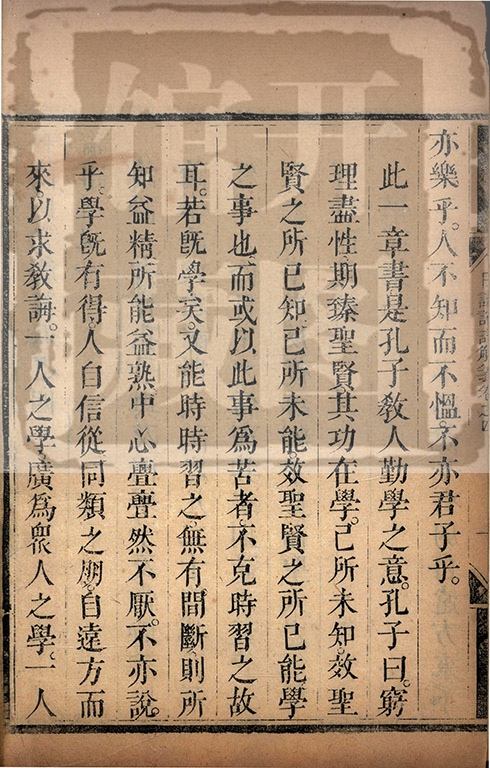 亦樂乎。人不知而不慍。不亦君子乎。
此一章書是孔子敎人勤學之意。孔子曰。窮
理盡性。期臻聖賢。其功在學。己所未知。效聖
賢之所已知。己所未能。效聖賢之所已能。學
之事也。而或以此事爲苦者。不克時習之故
耳。若旣學矣。又能時時習之。無有間斷。則所
知益精。所能益熟。中心亹亹然不厭。不亦說
乎。學旣有得。人自信從。同類之朋。自遠方而
來。以求敎誨。一人之學。廣爲衆人之學。一人